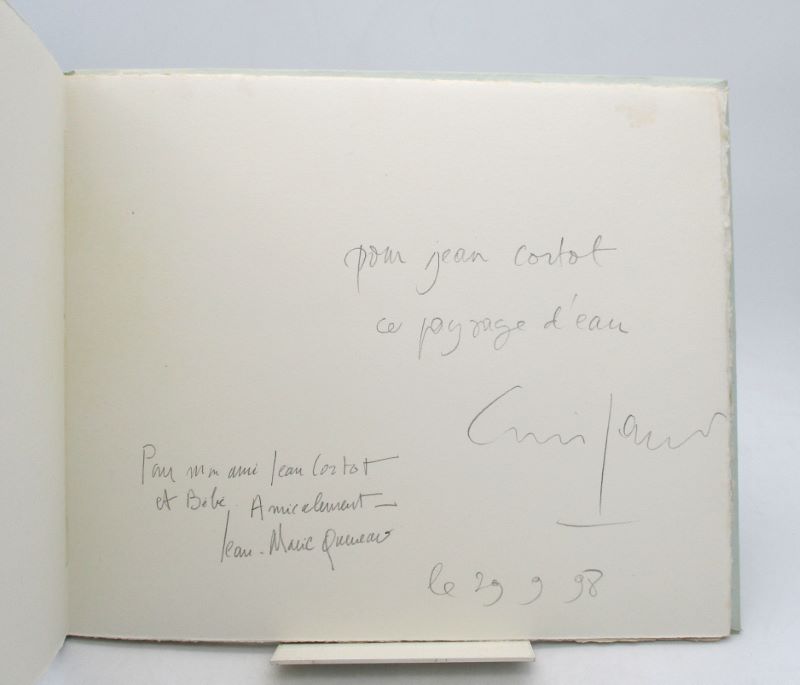 pour jean cortot
ce paysage d'eau
Pour mon ami Jean Cortot
et Bébé. Amicalement –
Jean-Marie Queneau
le 29 9 98